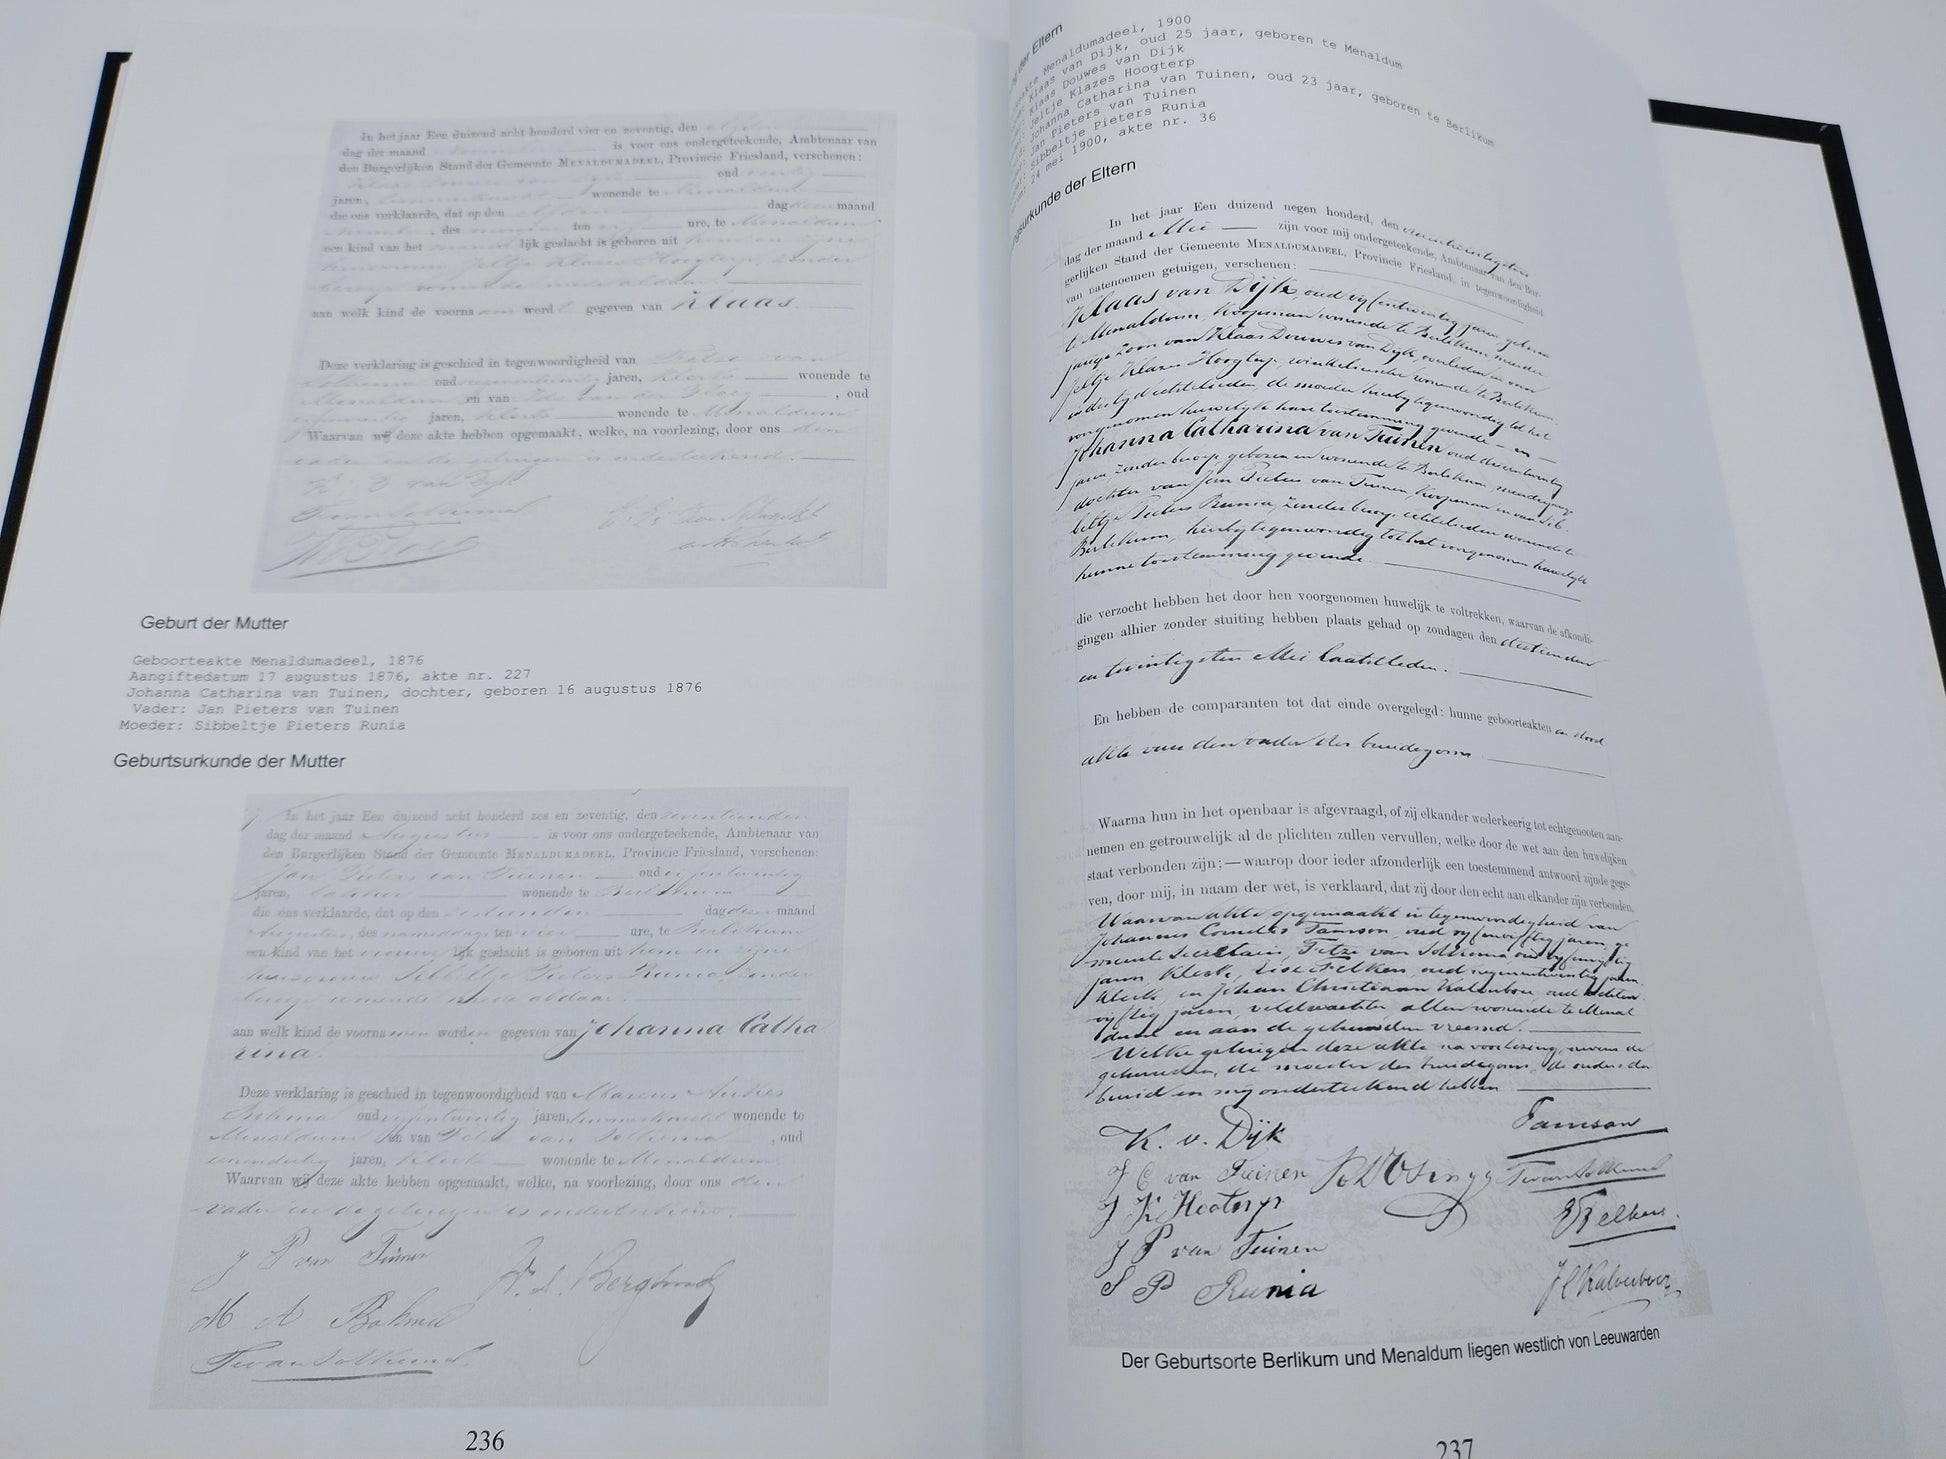 In het jaar Een duizend acht honderd vier en zeventig, den elfden
dag der maand November is voor ons ondergeteekende, Ambtenaar van
den Burgerlijken Stand der Gemeente MENALDUMADEEL, Provincie Friesland, verschenen:
Klaas Douwes van Dijk oud
jaren, wonende te Menaldum
die ons verklaarde, dat op den elfden dag dezer maand
November, des ten ure, te Menaldum
een kind van het lijk geslacht is geboren uit hem en zijne
huisvrouw Jeltje Klazes Hoogterp, zonder
beroep wonende mede aldaar
aan welk kind de voorna am word t gegeven van Klaas
Deze verklaring is geschied in tegenwoordigheid van Fetze van
oud jaren, Klerk wonende te
Menaldum en van van der Ploeg, oud
jaren, Klerk wonende te Menaldum
Waarvan wij deze akte hebben opgemaakt, welke, na voorlezing, door ons den
vader en de getuigen is onderteekend.
K. D van Dijk
Geburt der Mutter
Geboorteakte Menaldumadeel, 1876
Aangiftedatum 17 augustus 1876, akte nr. 227
Johanna Catharina van Tuinen, dochter, geboren 16 augustus 1876
Vader: Jan Pieters van Tuinen
Moeder: Sibbeltje Pieters Runia
Geburtsurkunde der Mutter
In het jaar Een duizend acht honderd zes en zeventig, den zeventienden
dag der maand Augustus is voor ons ondergeteekende, Ambtenaar van
den Burgerlijken Stand der Gemeente MENALDUMADEEL, Provincie Friesland, verschenen:
Jan Pieters van Tuinen oud vijfentwintig
jaren, wonende te Berlikum
die ons verklaarde, dat op den zestienden dag dezer maand
Augustus, des namiddags ten vier ure, te Berlikum
een kind van het vrouwe lijk geslacht is geboren uit hem en zijne
huisvrouw Sibbeltje Pieters Runia, zonder
beroep, wonende mede aldaar.
aan welk kind de voornamen worden gegeven van Johanna Catha
rina.
Deze verklaring is geschied in tegenwoordigheid van Marcus Ankes
Bokma oud vijfentwintig jaren, timmerknecht wonende te
Menaldum en van Fetze van Solkema, oud
jaren, Klerk wonende te Menaldum
Waarvan wij deze akte hebben opgemaakt, welke, na voorlezing, door ons den
vader en de getuigen is onderteekend.
J P van Tuinen
M A Bokma
236
der Eltern
Menaldumadeel, 1900
Klaas van Dijk, oud 25 jaar, geboren te Menaldum
Klaas Douwes van Dijk
Jeltje Klazes Hoogterp
Johanna Catharina van Tuinen, oud 23 jaar, geboren te Berlikum
Jan Pieters van Tuinen
Sibbeltje Pieters Runia
24 mei 1900, akte nr. 36
der Eltern
In het jaar Een duizend negen honderd, den vierentwintigsten
dag der maand Mei zijn voor mij ondergeteekende, Ambtenaar van den Bur-
gerlijken Stand der Gemeente MENALDUMADEEL, Provincie Friesland, in tegenwoordigheid
van natenoemen getuigen, verschenen:
Klaas van Dijk, oud vijfentwintig jaren, geboren
te Menaldum, Koopman wonende te Berlikum, meerder
jarige zoon van Klaas Douwes van Dijk, overleden en van
Jeltje Klazes Hoogterp, winkeliersche wonende te Berlikum,
in der tijd echtelieden, de moeder hierbij tegenwoordig tot het
voorgenomen huwelijk hare toestemming gevende en
Johanna Catharina van Tuinen oud drieentwintig
jaren zonder beroep, geboren en wonende te Berlikum, minderjarige
dochter van Jan Pieters van Tuinen, Koopman en van Sib
beltje Pieters Runia, zonder beroep, echtelieden wonende te
Berlikum, hierbij tegenwoordig tot het voorgenomen huwelijk
hunne toestemming gevende.
die verzocht hebben het door hen voorgenomen huwelijk te voltrekken, waarvan de afkondi-
gingen alhier zonder stuiting hebben plaats gehad op zondagen den dertienden
en twintigsten Mei laatstleden.
En hebben de comparanten tot dat einde overgelegd: hunne geboorteakten en dood
akte van den vader des bruidegoms
Waarna hun in het openbaar is afgevraagd, of zij elkander wederkeerig tot echtgenooten aan-
nemen en getrouwelijk al de plichten zullen vervullen, welke door de wet aan den huwelijken
staat verbonden zijn; — waarop door ieder afzonderlijk een toestemmend antwoord zijnde gege-
ven, door mij, in naam der wet, is verklaard, dat zij door den echt aan elkander zijn verbonden.
Waarvan akte opgemaakt in tegenwoordigheid van
Johannes Cornelis Tamson, oud vijfenvijftig jaren, ge
meente Secretaris, Fetze van Solkema oud
jaren Klerk, Felkers, oud negenentwintig jaren
Klerk, en Johan Christiaan Kalverboer, oud achten
vijftig jaren, veldwachter, allen wonende te Menal
dum en aan de gehuwden vreemd.
Welke getuigen deze akte na voorlezing, nevens de
gehuwden, de moeder des bruidegoms, de ouders der
bruid en mij onderteekend hebben
K. v. Dijk
Tamson
J C van Tuinen
J K Hooterp
J P van Tuinen
S P Runia
Der Geburtsorte Berlikum und Menaldum liegen westlich von Leeuwarden
237